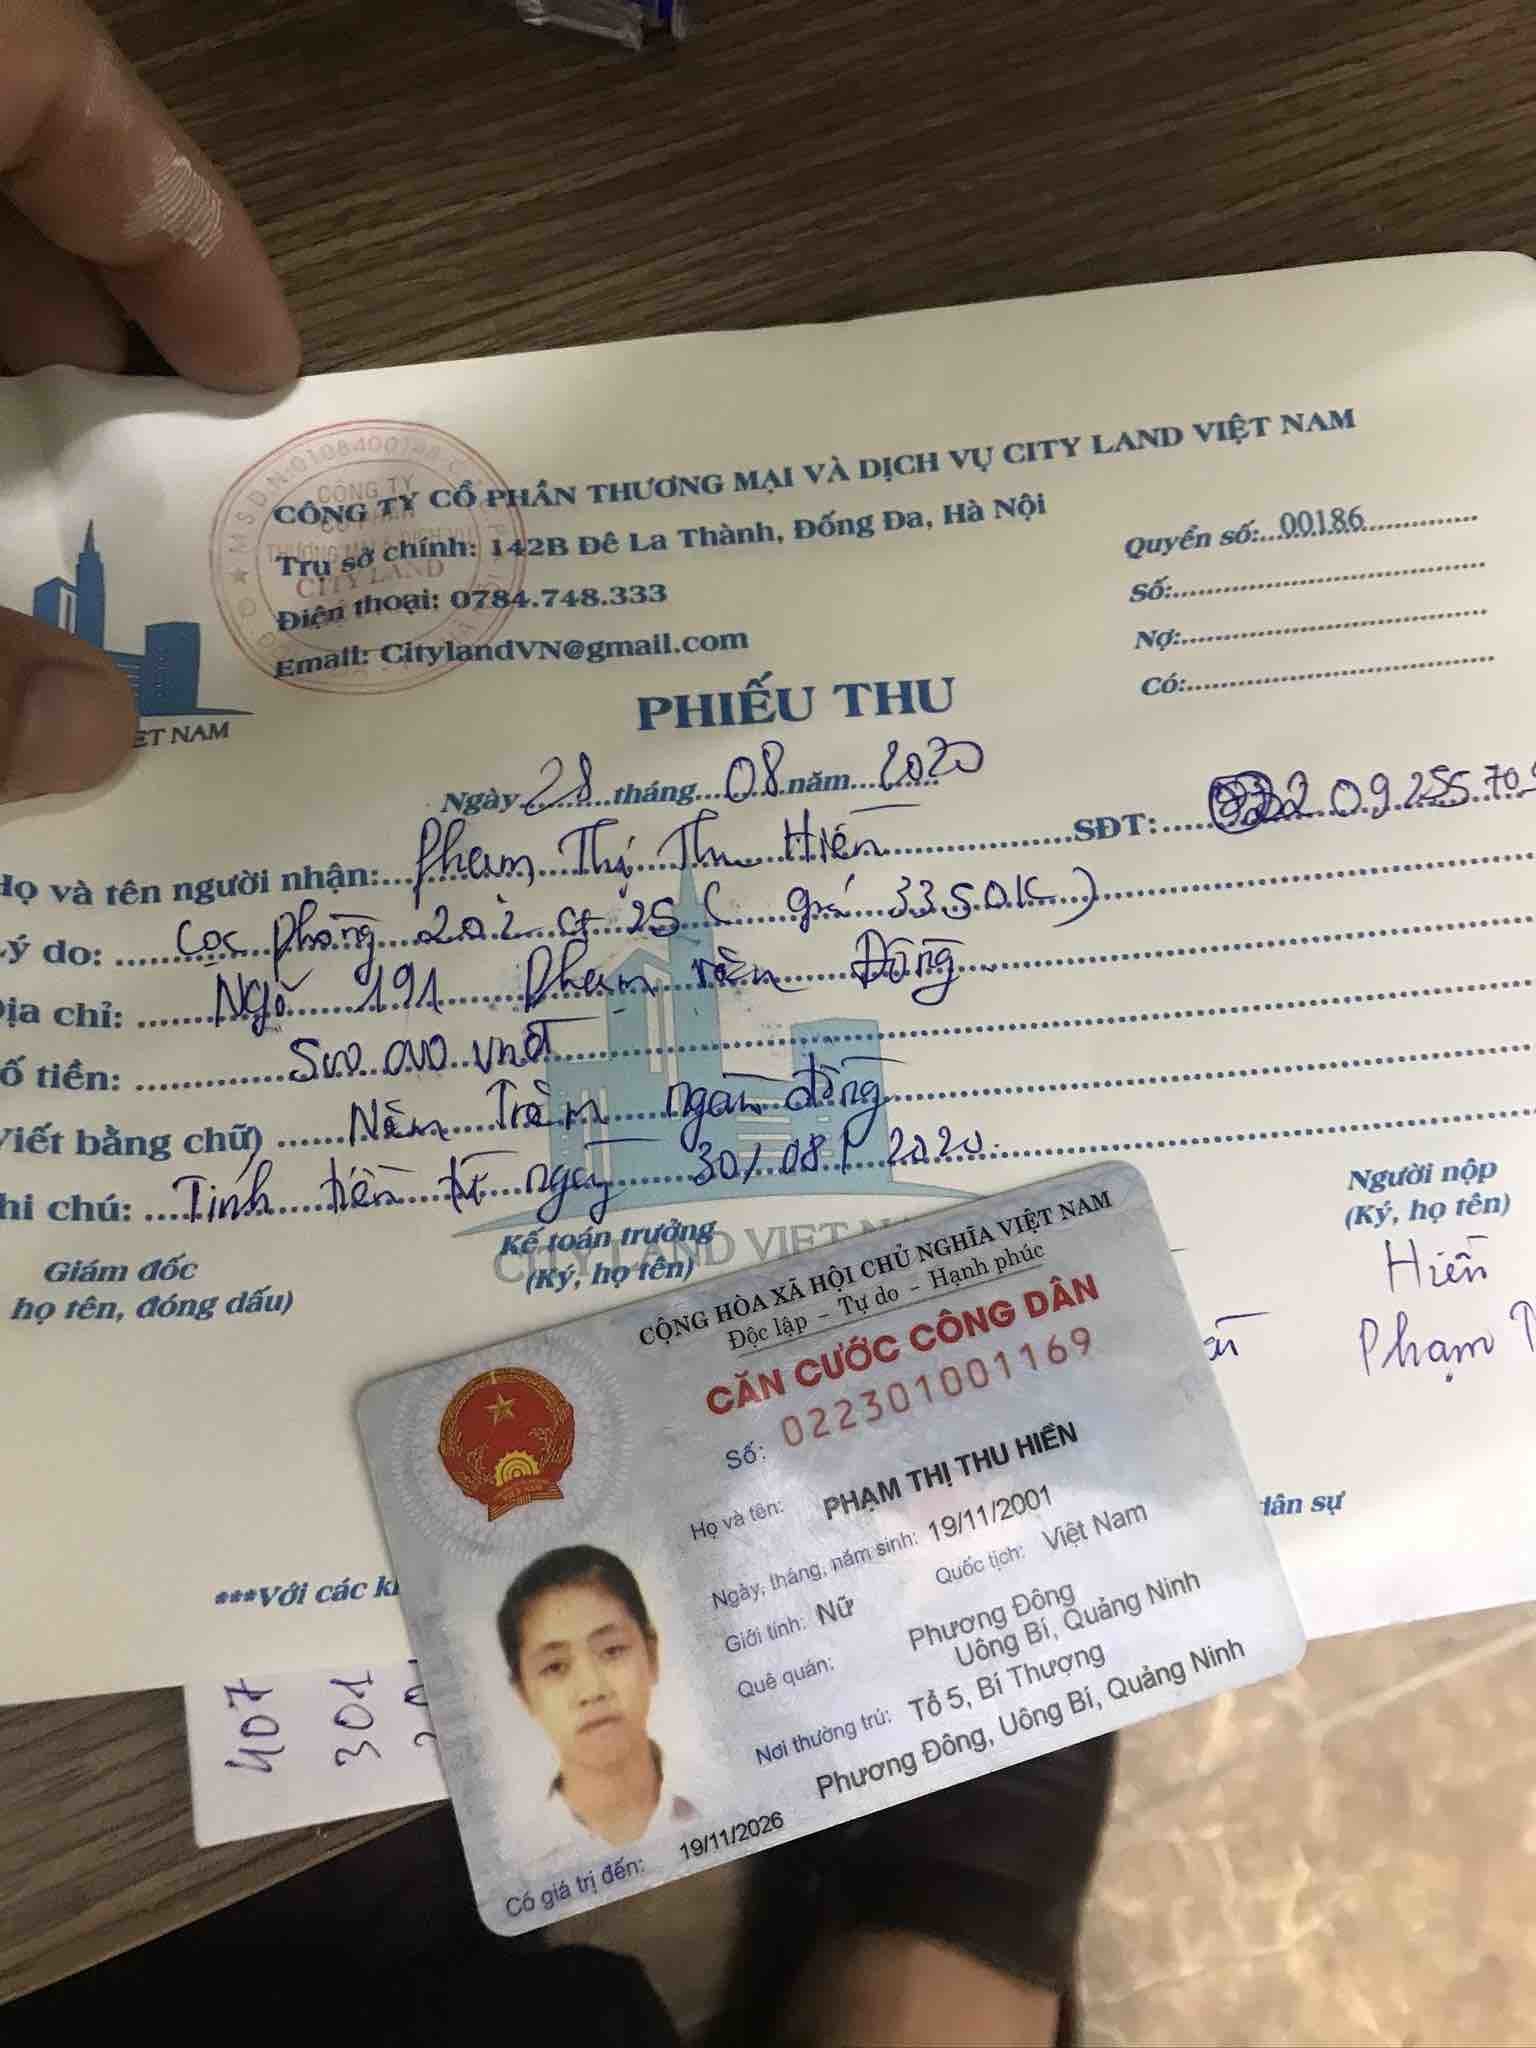 CÔNG TY CỔ PHẦN THƯƠNG MẠI VÀ DỊCH VỤ CITY LAND VIỆT NAM
Trụ sở chính: 142B Đê La Thành, Đống Đa, Hà Nội
Điện thoại: 0784.748.333
Email: CitylandVN@gmail.com
Quyển số: 00186
Số:
Nợ:
Có:
CÔNG TY
THƯƠNG MẠI & DỊCH VỤ
CITY LAND
ET NAM
PHIẾU THU
Ngày 28 tháng 08 năm 2020
Họ và tên người nhận: Phạm Thị Thu Hiền SĐT: 2 09255 70
Lý do: Cọc phòng 202 25 ( giá 3350K)
Địa chỉ: Ngõ 191 Phạm Văn Đồng
ố tiền: 500.000 vnđ
Viết bằng chữ) Năm Trăm ngàn đồng
hi chú: Tính tiền từ ngày 30/08/2020
Giám đốc
họ tên, đóng dấu)
Kế toán trưởng
(Ký, họ tên)
Người nộp
(Ký, họ tên)
Hiền
Phạm T
CITY LAND VIET NA
dân sự
***Với các k
407
301
CỘNG HÒA XÃ HỘI CHỦ NGHĨA VIỆT NAM
Độc lập – Tự do – Hạnh phúc
CĂN CƯỚC CÔNG DÂN
Số: 022301001169
Họ và tên: PHẠM THỊ THU HIỀN
Ngày, tháng, năm sinh: 19/11/2001
Giới tính: Nữ Quốc tịch: Việt Nam
Quê quán: Phương Đông
Uông Bí, Quảng Ninh
Nơi thường trú: Tổ 5, Bí Thượng
Phương Đông, Uông Bí, Quảng Ninh
Có giá trị đến: 19/11/2026